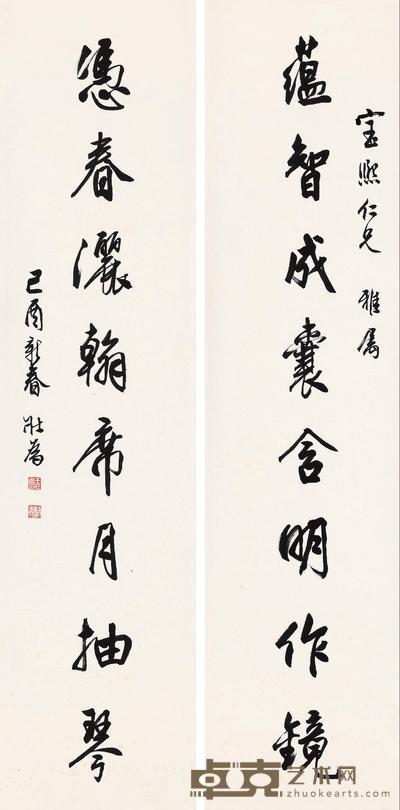 宝熙仁兄 雅属
蕴智成囊含明作镜
凭春洒翰席月抽琴
己酉新春 壮为
卓克艺术网
www.zhuokearts.com